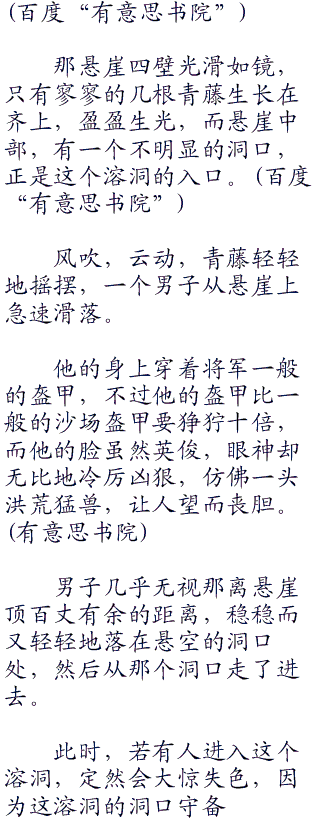 (百度“有意思书院”)
那悬崖四壁光滑如镜，
只有寥寥的几根青藤生长在
齐上，盈盈生光，而悬崖中
部，有一个不明显的洞口，
正是这个溶洞的入口。(百度
“有意思书院”)
风吹，云动，青藤轻轻
地摇摆，一个男子从悬崖上
急速滑落。
他的身上穿着将军一般
的盔甲，不过他的盔甲比一
般的沙场盔甲要狰狞十倍，
而他的脸虽然英俊，眼神却
无比地冷厉凶狠，仿佛一头
洪荒猛兽，让人望而丧胆。
(有意思书院)
男子几乎无视那离悬崖
顶百丈有余的距离，稳稳而
又轻轻地落在悬空的洞口
处，然后从那个洞口走了进
去。
此时，若有人进入这个
溶洞，定然会大惊失色，因
为这溶洞的洞口守备